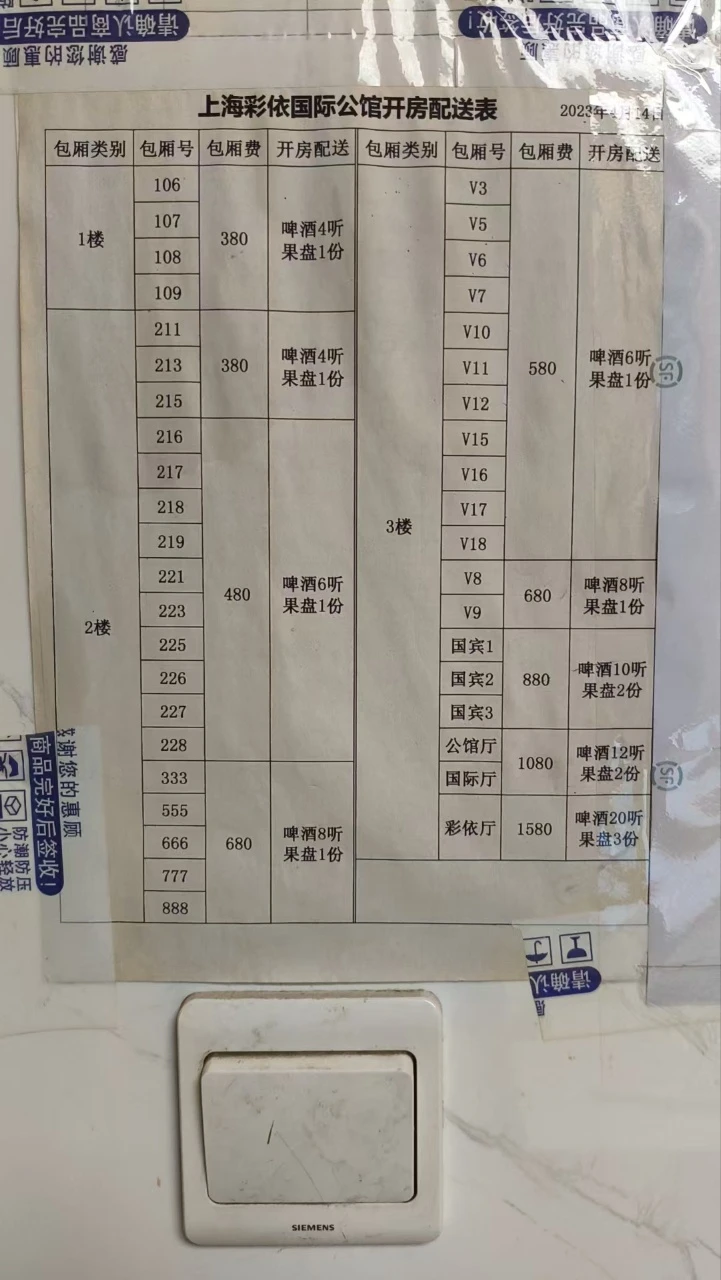 请确认商品完好后
感谢您的惠顾
请确认商品完好后签收!
感谢您的惠顾
上海彩依国际公馆开房配送表
2023年4月14日
包厢类别 包厢号 包厢费 开房配送 包厢类别 包厢号 包厢费 开房配送
1楼
106
107
108
109
380
啤酒4听
果盘1份
2楼
211
213
215
380
啤酒4听
果盘1份
216
217
218
219
221
223
225
226
227
228
480
啤酒6听
果盘1份
333
555
666
777
888
680
啤酒8听
果盘1份
3楼
V3
V5
V6
V7
V10
V11
V12
V15
V16
V17
V18
580
啤酒6听
果盘1份
V8
V9
680
啤酒8听
果盘1份
国宾1
国宾2
国宾3
880
啤酒10听
果盘2份
公馆厅
国际厅
1080
啤酒12听
果盘2份
彩依厅
1580
啤酒20听
果盘3份
SF
SF
谢您的惠顾
商品完好后签收!
防潮防压
小心轻放
请确认
SIEMENS